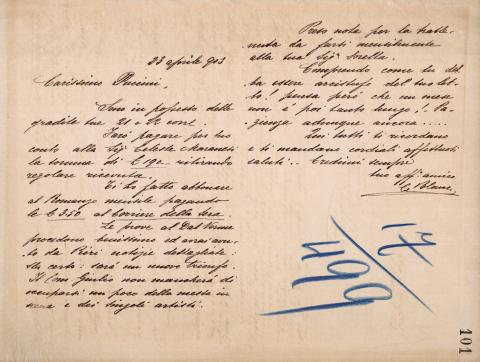 23 aprile 903
Carissimo Puccini,
Sono in possesso delle
gradite tue 21 e 22 corr.
Farò pagare per tuo
conto alla Sigª Celeste
la somma di £ 190 ritirando
regolare ricevuta.
Ti ho fatto abbonare
al Romanzo mensile pagando
le £ 3.50 al Corriere della Sera.
Le prove al Dal Verme
procedono benissimo ed avrai avu-
to da Pieri notizie dettagliate:
sta certo: sarà un nuovo trionfo.
Il Com Giulio non mancherà di
occuparsi un poco della messa in
scena e dei singoli artisti.
Preso nota per la tratte-
nuta da farsi mensilmente
alla tua Sigª Sorella.
Comprendo come tu deb-
ba essere arcistufo del tuo let-
to! pensa però che un mese
non è poi tanto lungo! Pa-
zienza adunque ancora.....
Qui tutti ti ricordano
e ti mandano cordiali affettuosi
saluti.. Credimi sempre
tuo aff. amico
C. Blanc
17
499
101